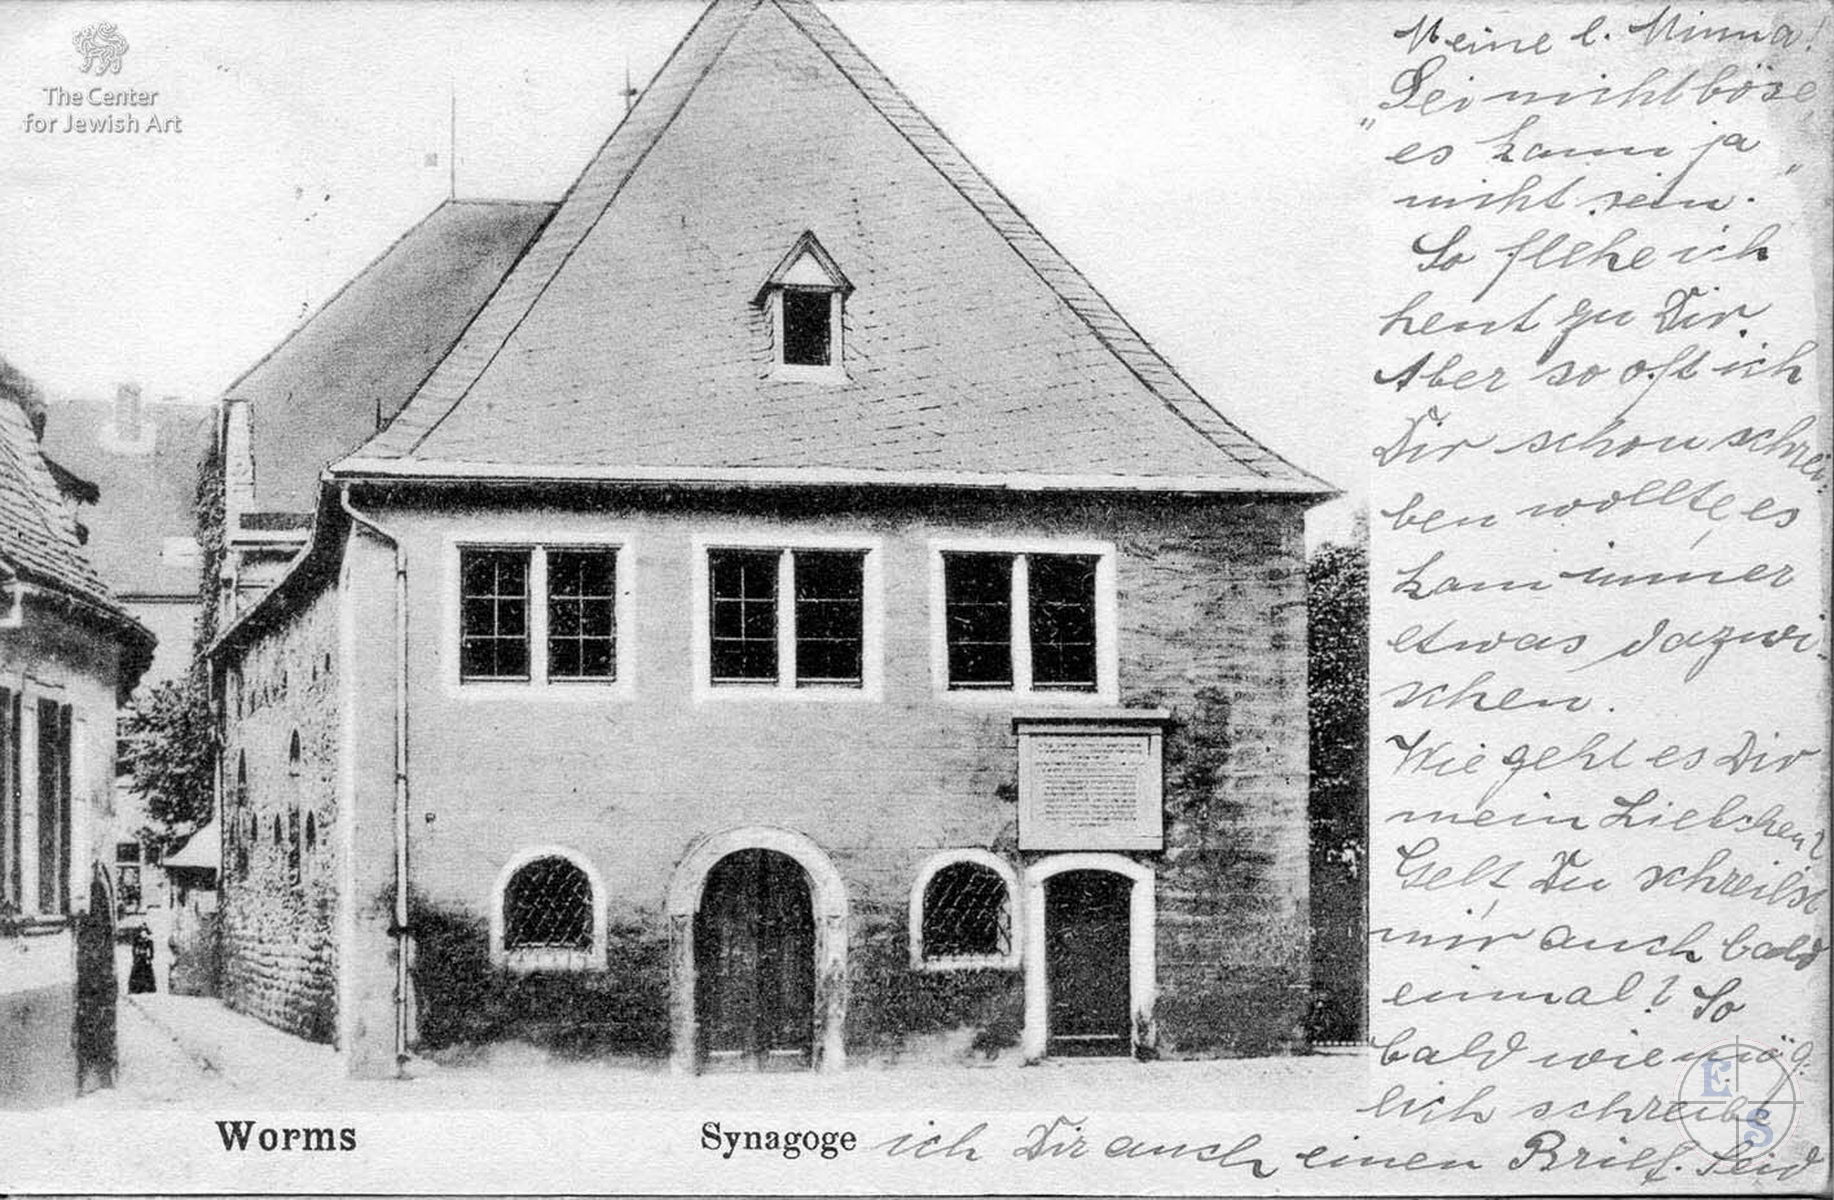 The Center
for Jewish Art
Meine l. Minna!
„Sei nicht böse,
es kann ja
nicht sein.“
So flehe ich
heut zu Dir.
Aber so oft ich
Dir schon schrei-
ben wollte, es
kam immer
etwas dazwi-
schen.
Wie geht es Dir
mein Liebchen?
Gelt, Du schreibst
mir auch bald
einmal? So
bald wie mög-
lich schreibe
ich Dir auch einen Brief. Seid
Worms
Synagoge
E
S